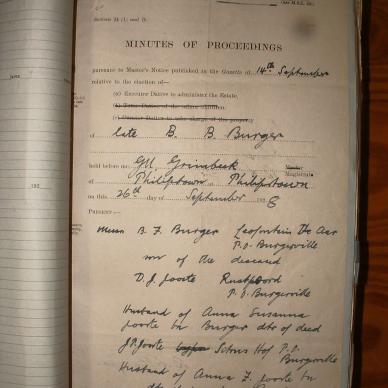 Sections 34 (1) and
MINUTES OF PROCEEDINGS
pursuant to Master's Notice published in the Gazette of 14th September
relative to the election of—
(a) Executor Dative to administer the Estate,
(b) Tutor Dative of the minor children.
(c) Curator Dative to take charge of the property
of late B. B. Burger
held before me, GM. Grimbeck Master Magistrate
of Philipstown at Philipstown
on this 26th day of September 192 8
PRESENT:—
B. J. Burger De Aar
P.O. Burgerville
son of the deceased
D. J. Jooste
P.O. Burgerville
Husband of Anna Susanna
Jooste bn Burger dtr of deed
J P Joote Hof P.O.
Burgerville
Husband of Anna J. Joote bn
192